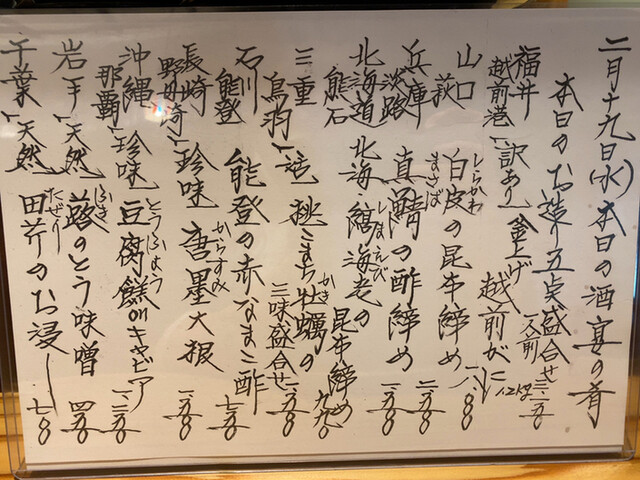 二月十九日(水)本日の酒宴の肴
本日のお造り五点盛合せ 一人前 三、三五〇
福井 越前港 訳あり 釜上げ 越前がに 1.2kg
山口 萩 白皮の昆布締め しらかわ 一、八〇〇
兵庫 淡路 真鯖の酢締め まさば 二、二五〇
北海道 熊石 北海縞海老の昆布締め しまえび 九九〇
三重 鳥羽 桃こまち牡蠣の三味盛合せ かき 一、五〇〇
石川 能登 能登の赤なまこ酢 七五〇
長崎 野母崎 珍味 唐墨大根 からすみ 一、五〇〇
沖縄 那覇 珍味 豆腐餻 とうふよう キャビア 一、三五〇
岩手 天然 蕗のとう味噌 ふき 四五〇
千葉 天然 田芹のお浸し たぜり 七〇〇